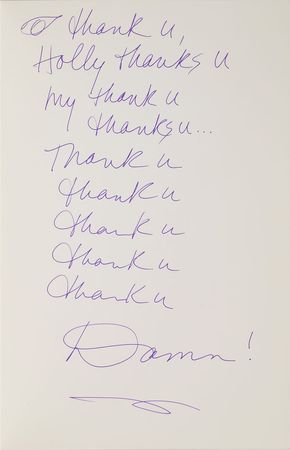 I thank u,
Holly thanks u
my thank u
thanks u...
Thank u
thank u
thank u
thank u
thank u
Damn!